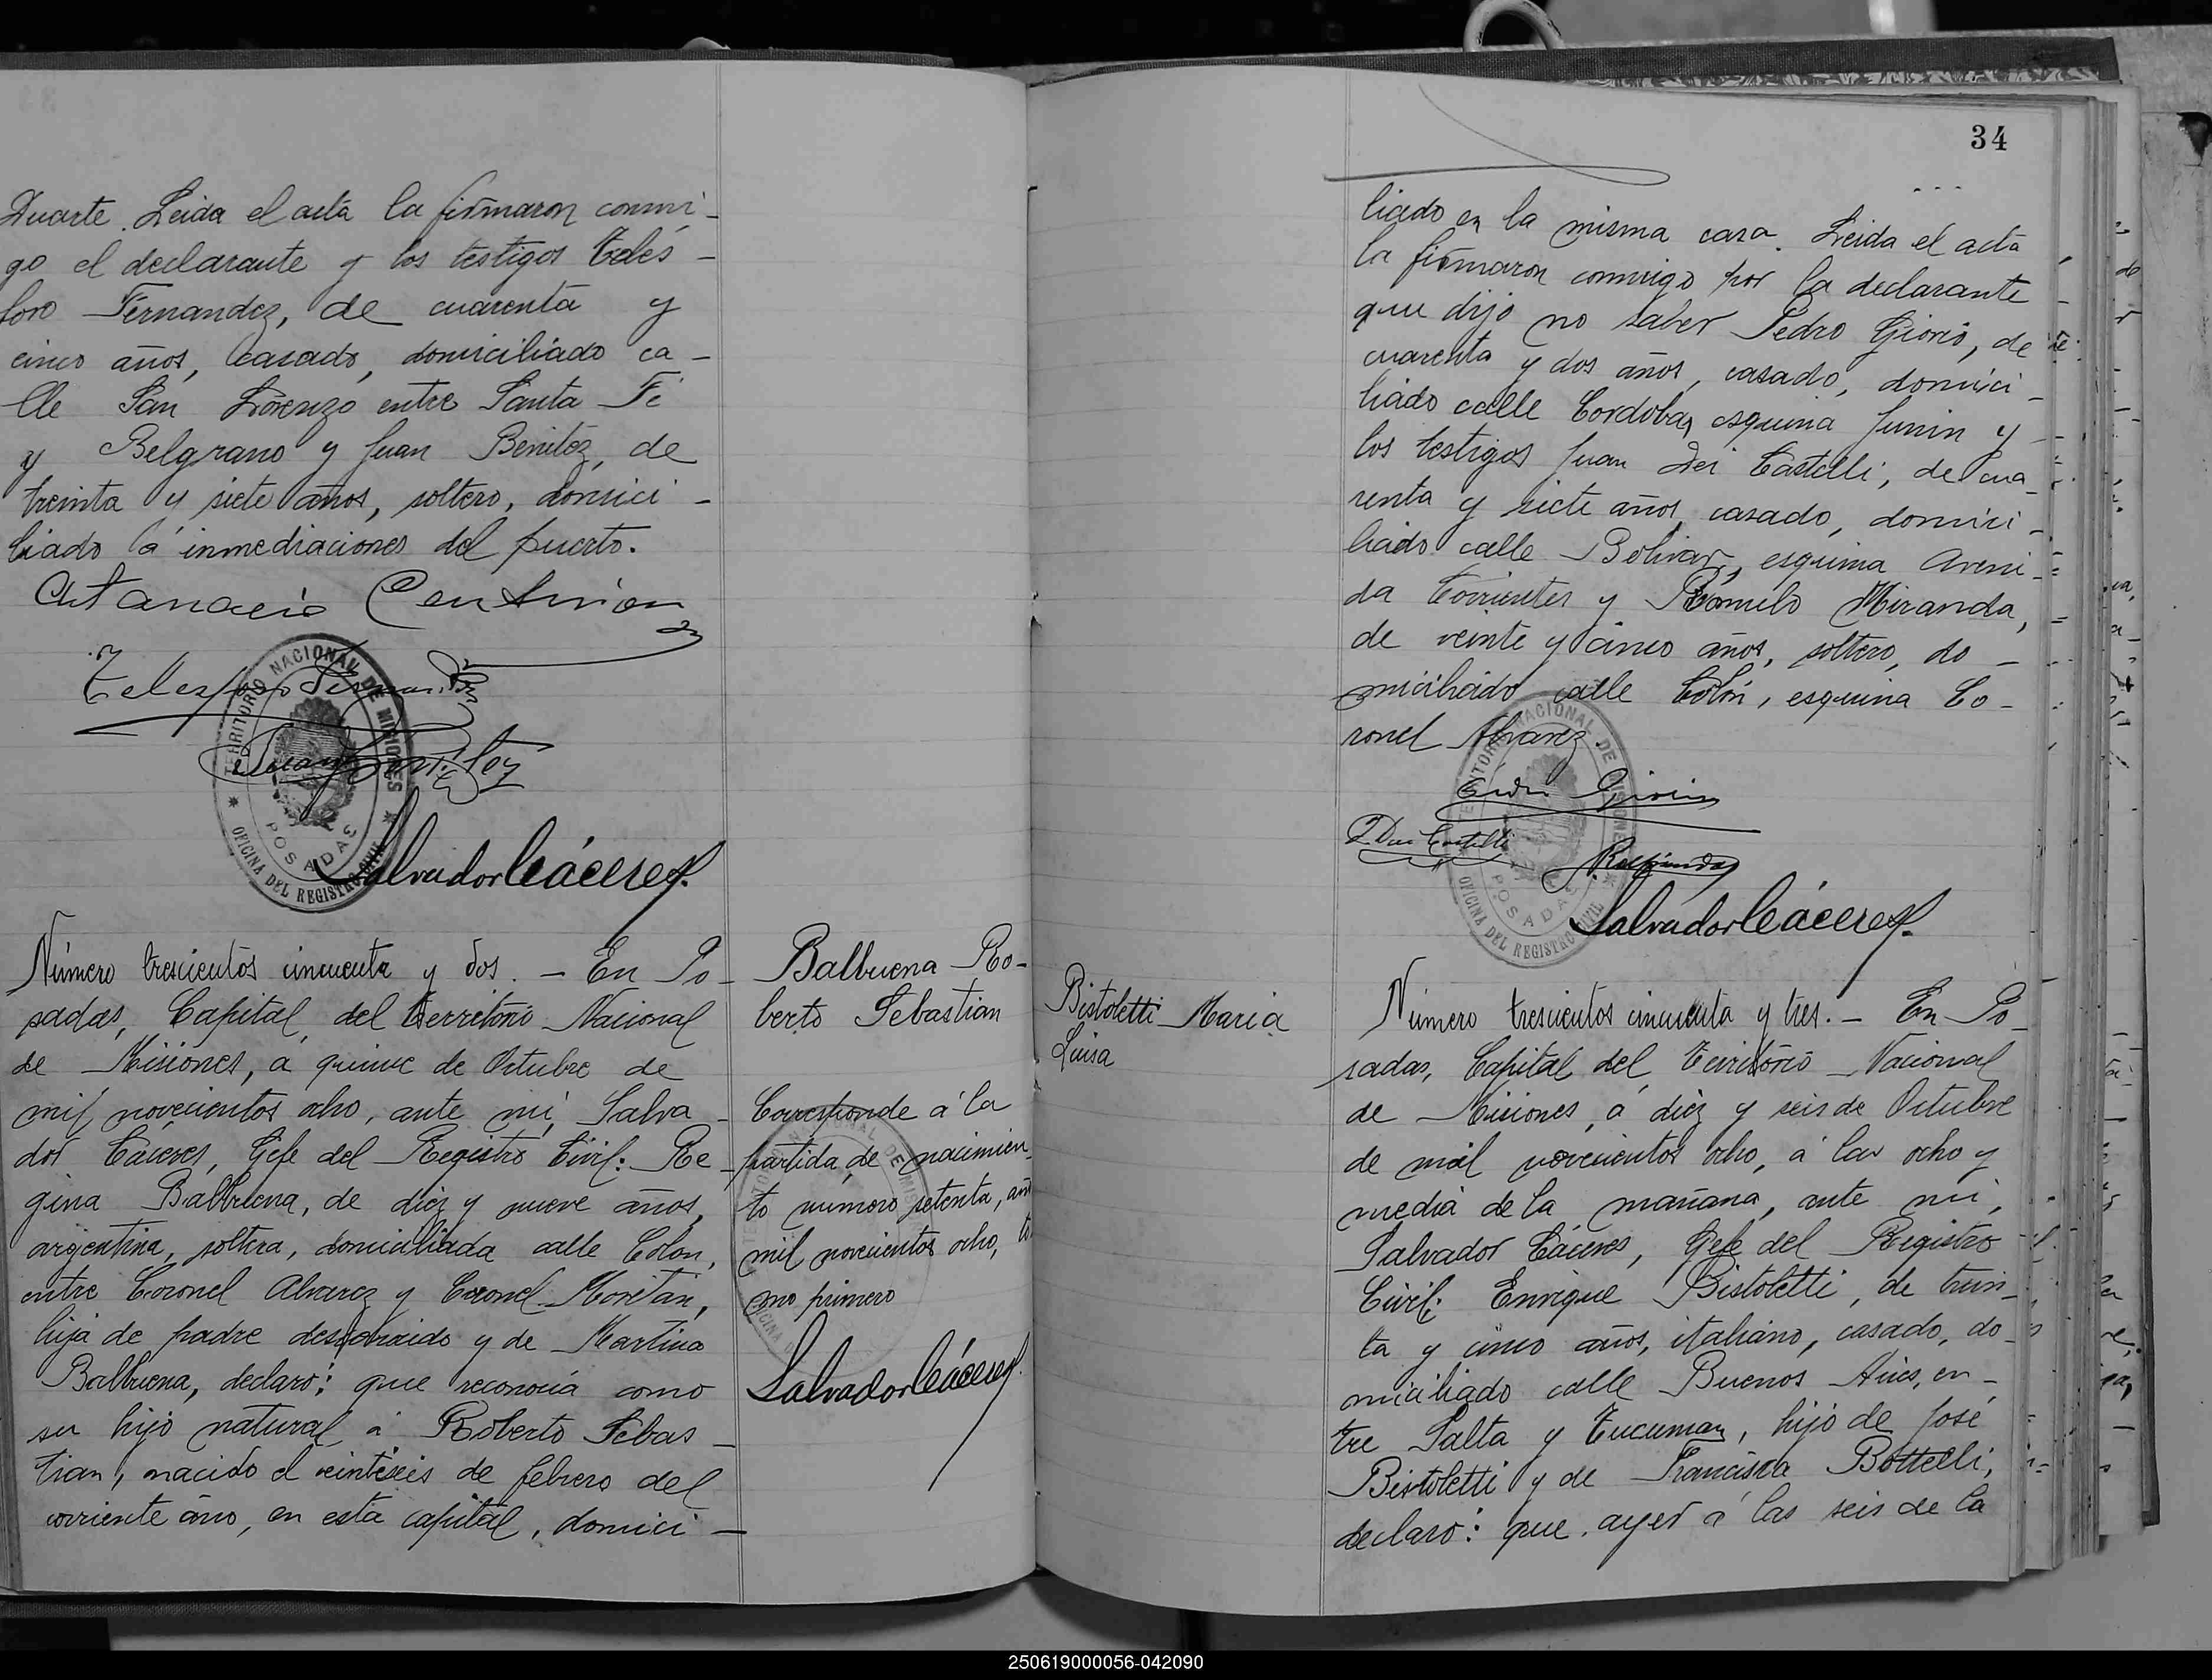 Duarte. Leida el acta la firmaron conmi-
go el declarante y los testigos Telés-
foro Fernandez, de cuarenta y
cinco años, casado, domiciliado ca-
lle San Lorenzo entre Santa Fé
y Belgrano y Juan Benitez, de
treinta y siete años, soltero, domici-
liado á inmediaciones del puerto.
Atanacio Centurion
Telesforo Fernandez
Juan Benitez
TERRITORIO NACIONAL DE MISIONES
POSADAS
OFICINA DEL REGISTRO CIVIL
Salvador Cáceres.
Número trescientos cincuenta y dos. - En Po-
sadas, Capital del Territorio Nacional
de Misiones, a quince de Octubre de
mil novecientos ocho, ante mi, Salva-
dor Cáceres, Gefe del Registro Civil: Re-
gina Balbuena, de diez y nueve años,
argentina, soltera, domiciliada calle Colon,
entre Coronel Alvarez y Coronel Moritán,
hija de padre desconocido y de Martina
Balbuena, declaró: que reconocia como
su hijo natural á Roberto Sebas-
tian, nacido el veintiseis de febrero del
corriente año, en esta capital, domici-
Balbuena Ro-
berto Sebastian
Corresponde á la
partida de nacimien-
to numero setenta, año
mil novecientos ocho, to
mo primero
Salvador Cáceres.
34
liado en la misma casa. Leida el acta
la firmaron conmigo por la declarante
que dijo no saber Pedro Giorio, de
cuarenta y dos años, casado, domici-
liado calle Cordoba, esquina Junin y
los testigos Juan Dei Castelli, de cua-
renta y siete años, casado, domici-
liado calle Bolivar, esquina Aveni-
da Corrientes y Romulo Miranda,
de veinte y cinco años, soltero, do-
miciliado calle Colón, esquina Co-
ronel Alvarez.
J. Dei Castelli
TERRITORIO NACIONAL DE MISIONES
POSADAS
OFICINA DEL REGISTRO CIVIL
Salvador Cáceres.
Bistoletti Maria
Luisa
Número trescientos cincuenta y tres. - En Po-
sadas, Capital del Territorio Nacional
de Misiones, a diez y seis de Octubre
de mil novecientos ocho, á las ocho y
media de la mañana, ante mi,
Salvador Cáceres, Gefe del Registro
Civil: Enrique Bistoletti, de trein-
ta y cinco años, italiano, casado, do-
miciliado calle Buenos Aires, en-
tre Salta y Tucuman, hijo de José
Bistoletti y de Francisca Bottelli,
declaró: que ayer á las seis de la
250619000056-042090